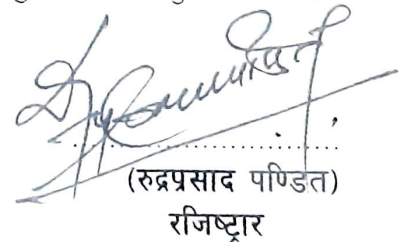 (रुद्रप्रसाद पण्डित)
रजिष्ट्रार